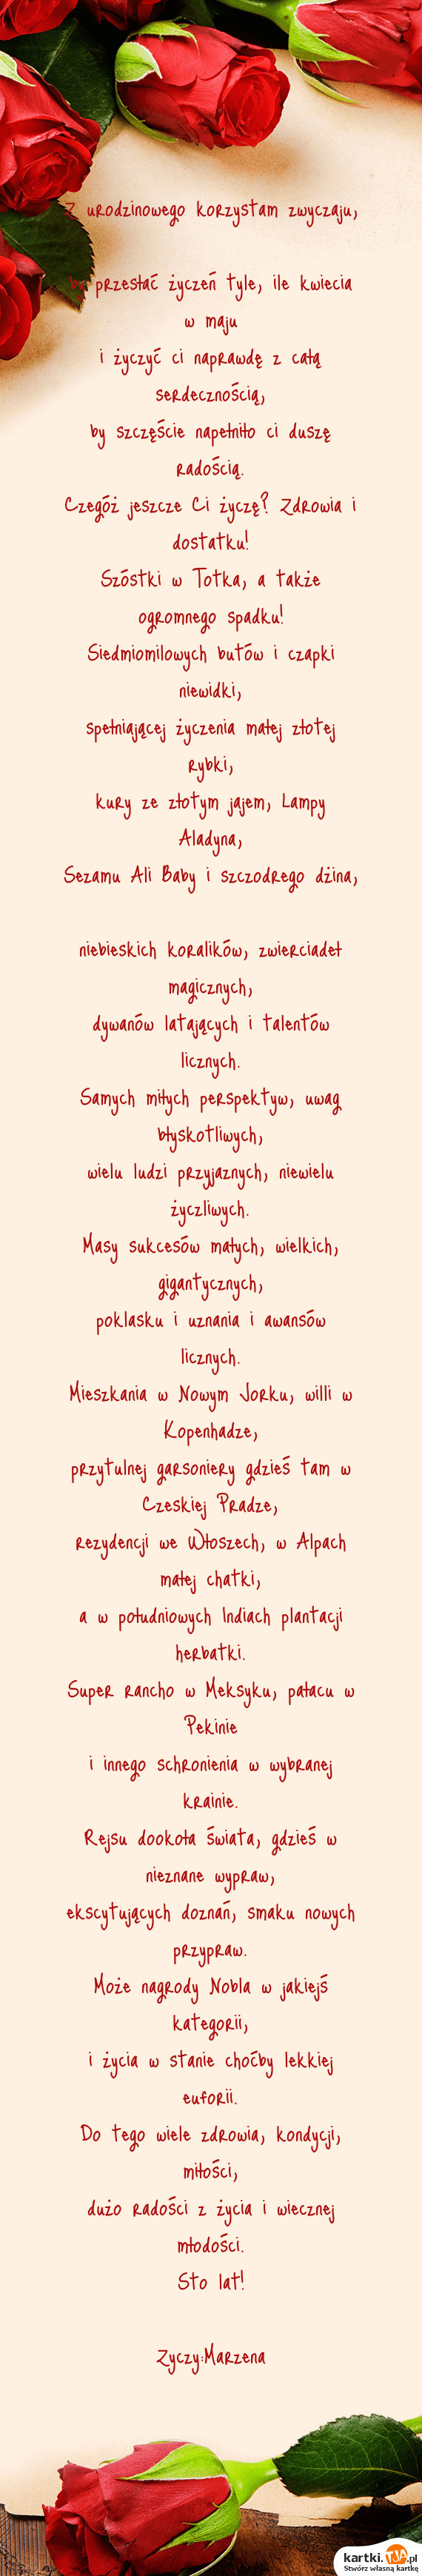 Z urodzinowego korzystam zwyczaju,
by przesłać życzeń tyle, ile kwiecia
w maju
i życzyć ci naprawdę z całą
serdecznością,
by szczęście napełniło ci duszę
radością.
Czegóż jeszcze Ci życzę? Zdrowia i
dostatku!
Szóstki w Totka, a także
ogromnego spadku!
Siedmiomilowych butów i czapki
niewidki,
spełniającej życzenia małej złotej
rybki,
kury ze złotym jajem, Lampy
Aladyna,
Sezamu Ali Baby i szczodrego dżina,
niebieskich koralików, zwierciadeł
magicznych,
dywanów latających i talentów
licznych.
Samych miłych perspektyw, uwag
błyskotliwych,
wielu ludzi przyjaznych, niewielu
życzliwych.
Masy sukcesów małych, wielkich,
gigantycznych,
poklasku i uznania i awansów
licznych.
Mieszkania w Nowym Jorku, willi w
Kopenhadze,
przytulnej garsoniery gdzieś tam w
Czeskiej Pradze,
rezydencji we Włoszech, w Alpach
małej chatki,
a w południowych Indiach plantacji
herbatki.
Super rancho w Meksyku, pałacu w
Pekinie
i innego schronienia w wybranej
krainie.
Rejsu dookoła świata, gdzieś w
nieznane wypraw,
ekscytujących doznań, smaku nowych
przypraw.
Może nagrody Nobla w jakiejś
kategorii,
i życia w stanie choćby lekkiej
euforii.
Do tego wiele zdrowia, kondycji,
miłości,
dużo radości z życia i wiecznej
młodości.
Sto lat!
Zyczy:Marzena
kartki.tja.pl
Stwórz własną kartkę